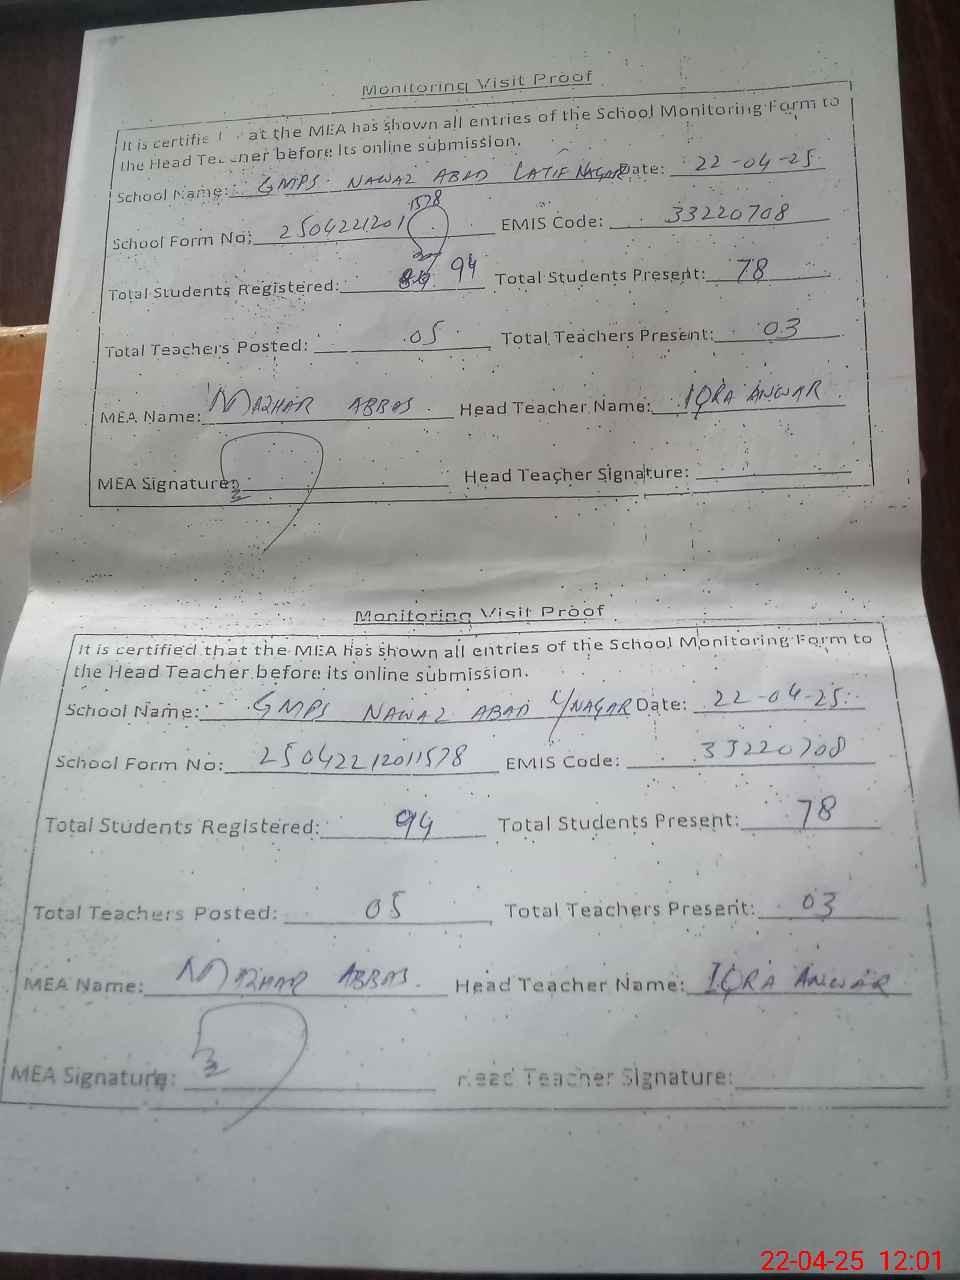 Monitoring Visit Proof
It is certifie at the MEA has shown all entries of the School Monitoring Form to
the Head Te ner before its online submission.
School Name: GMPS NAWAZ ABAD LATIF NAGAR Date: 22-04-25
1578
School Form No: 2504221201 EMIS Code: 33220708
Total Students Registered: 94 Total Students Present: 78
Total Teachers Posted: 05 Total Teachers Present: 03
MEA Name: MAZHAR ABBAS Head Teacher Name: IQRA ANWAR
MEA Signature: Head Teacher Signature:
Monitoring Visit Proof
It is certified that the MEA has shown all entries of the School Monitoring Form to
the Head Teacher before its online submission.
School Name: GMPS NAWAZ ABAD L/NAGAR Date: 22-04-25
School Form No: 25042212011578 EMIS Code: 33220708
Total Students Registered: 94 Total Students Present: 78
Total Teachers Posted: 05 Total Teachers Present: 03
MEA Name: MAZHAR ABBAS Head Teacher Name: IQRA ANWAR
MEA Signature: Head Teacher Signature:
22-04-25 12:01